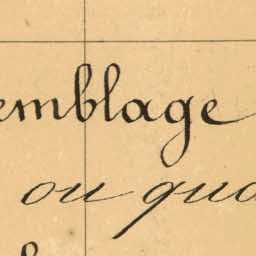 emblage
ou qua